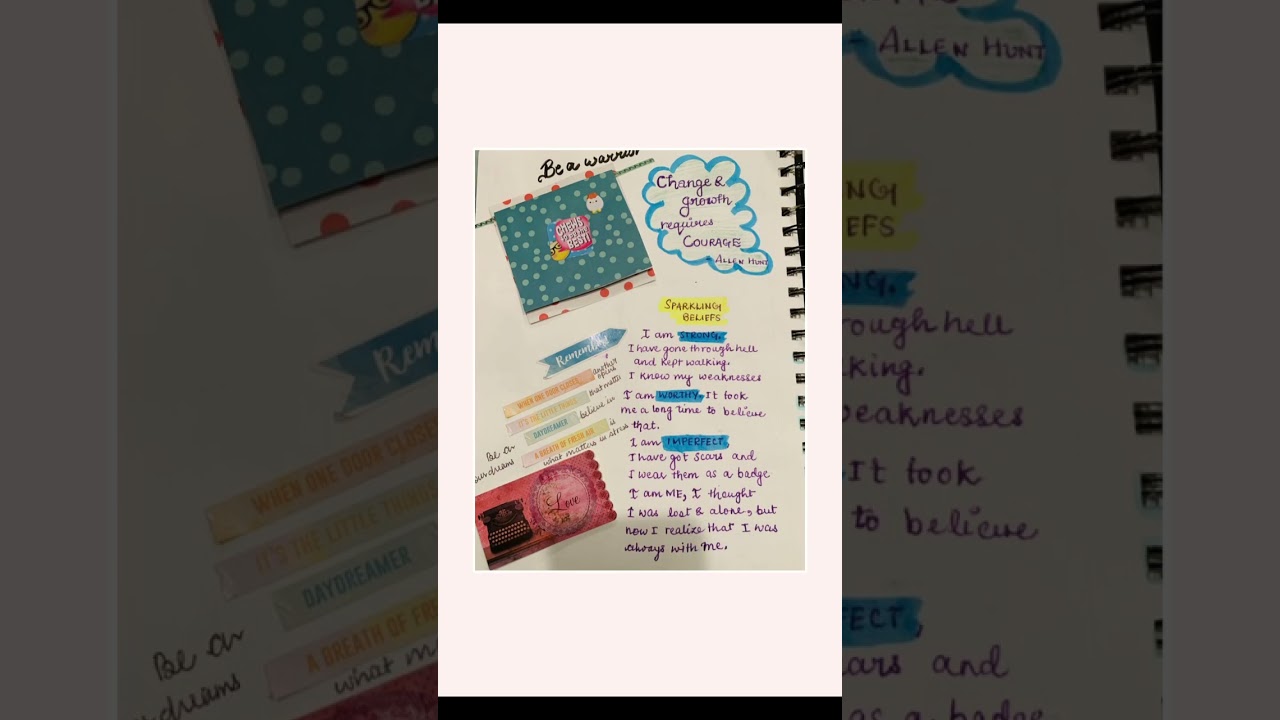 Be a warrior
Change &
growth
requires
COURAGE
- ALLEN HUNT
CHEWS
BEST!
SPARKLING
BELIEFS
I am STRONG.
I have gone through hell
and kept walking.
I know my weaknesses
I am WORTHY. It took
me a long time to believe
that.
I am IMPERFECT,
I have got scars and
I wear them as a badge
I am ME, I thought
I was lost & alone, but
now I realize that I was
always with me.
Remember
WHEN ONE DOOR CLOSES another opens
IT'S THE LITTLE THINGS that matter
Be a DAYDREAMER believe in
our dreams
A BREATH OF FRESH AIR is
what matters in stress
Love